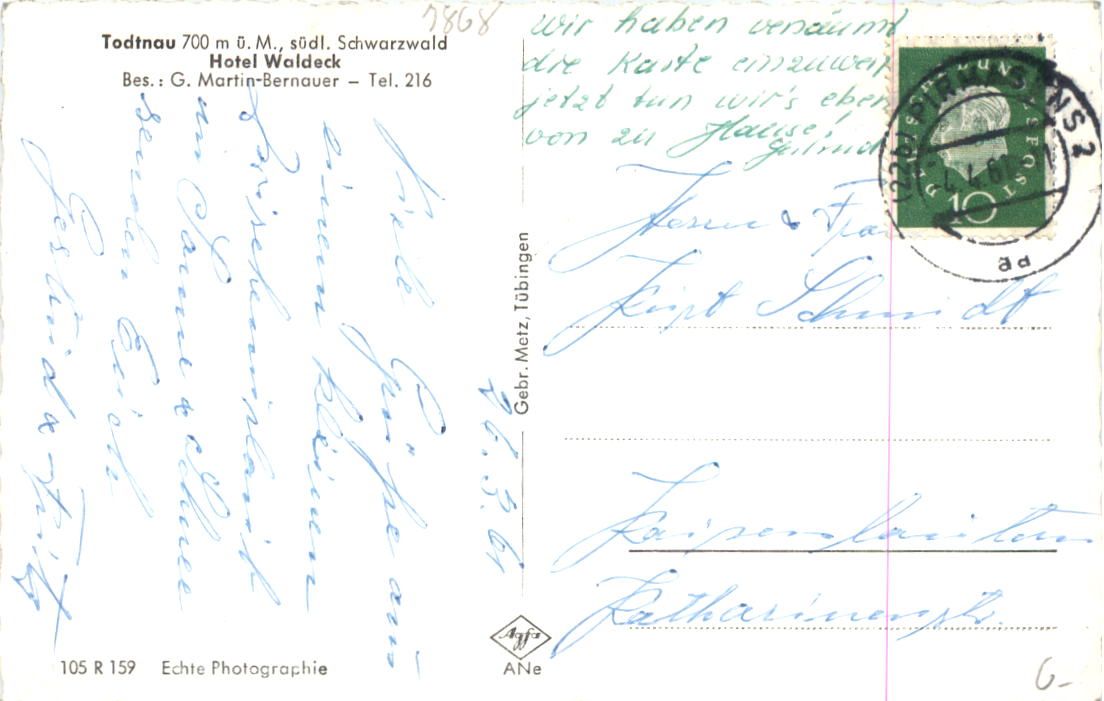 7868
Todtnau 700 m ü. M., südl. Schwarzwald
Hotel Waldeck
Bes.: G. Martin-Bernauer – Tel. 216
26.3.61
Viele Grüße aus
einem kleinen
Zwischenurlaub
in Sonne & Schnee
senden Euch
Gertrud & Fritz
105 R 159 Echte Photographie
Gebr. Metz, Tübingen
Agfa
ANe
wir haben versäumt
die Karte einzuwerf
jetzt tun wir's eben
von zu Hause!
Gertrud
DEUTSCHE BUNDESPOST
10
(22b) PIRMASENS 2
-4.4.61
ad
Herrn & Frau
Kurt Schmidt
Kaiserslautern
Katharinenstr.
6-